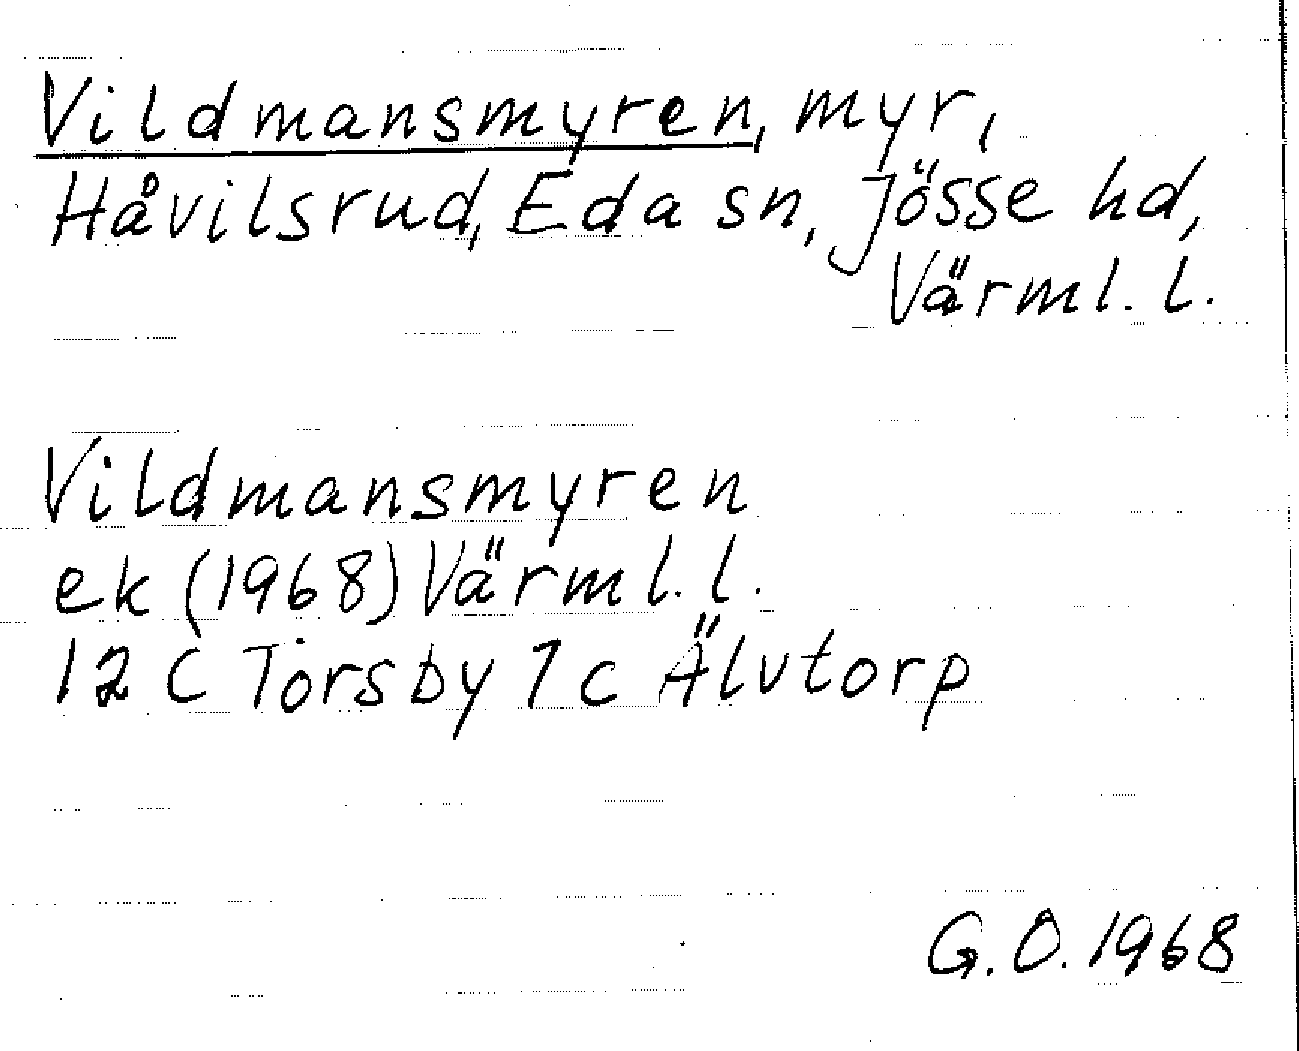 Vildmansmyren, myr,
Håvilsrud, Eda sn, Jösse hd,
Värml. l.
Vildmansmyren
ek (1968) Värml. l.
12 C Torsby 1 c Älvtorp
G. O. 1968